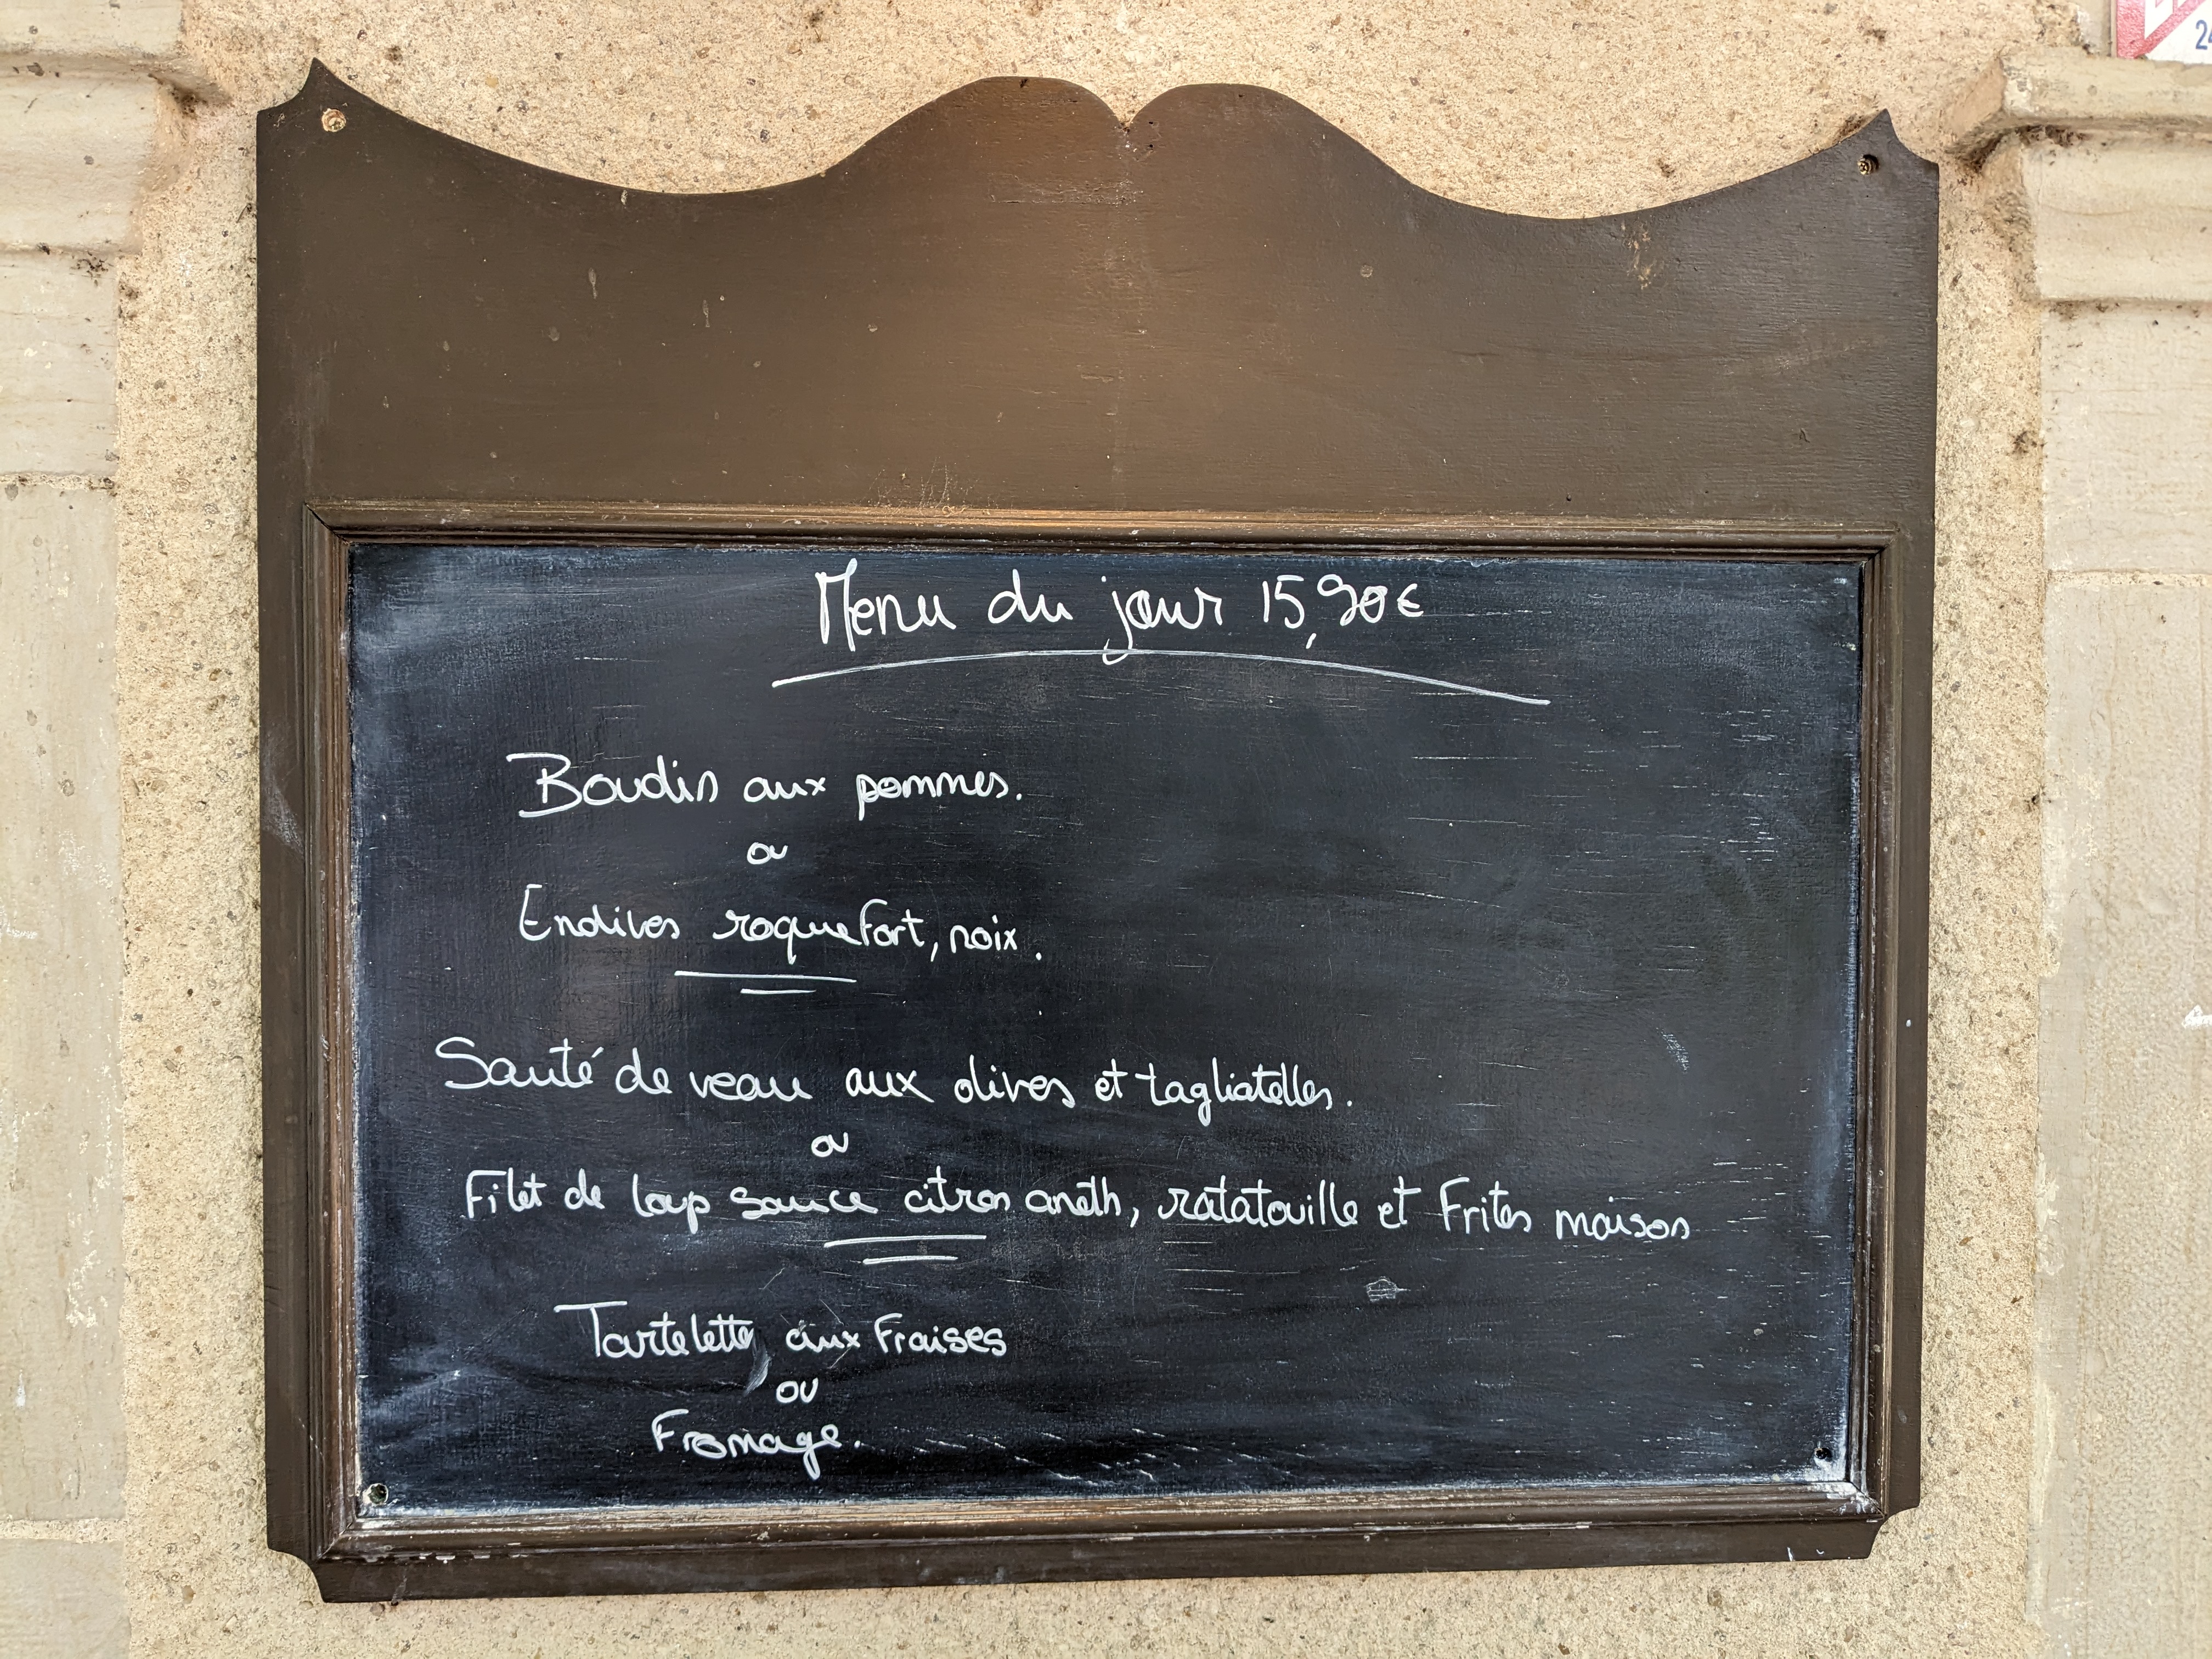 Menu du jour 15,90€
Boudin aux pommes.
ou
Endives roquefort, noix.
Sauté de veau aux olives et tagliatelles.
ou
Filet de loup sauce citron aneth, ratatouille et Frites maison
Tartelette aux Fraises
ou
Fromage.